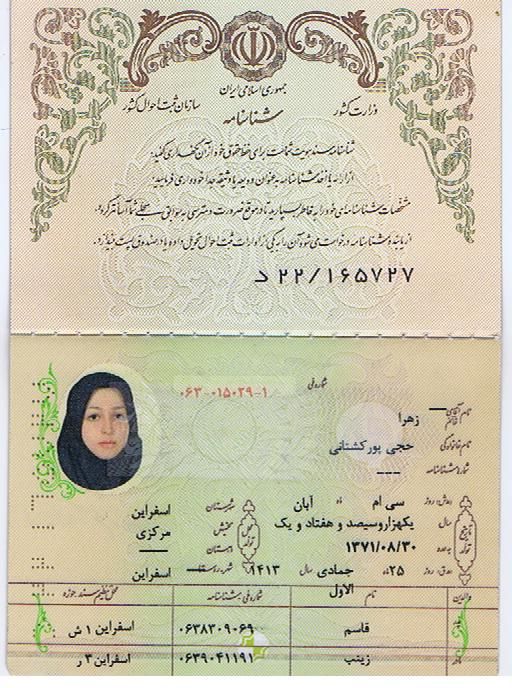 جمهوری اسلامی ایران
وزارت کشور
سازمان ثبت احوال کشور
شناسنامه
شناسنامه سند هویت شماست برای حفظ حقوق خود از آن نگهداری کنید.
از ارائه یا اخذ شناسنامه به عنوان ودیعه یا وثیقه جدا خودداری فرمایید.
مشخصات شناسنامه‌ای خود را به خاطر بسپارید تا در موقع ضرورت دسترسی به سوابق سجلی شما آسانتر گردد.
از یابنده شناسنامه درخواست می شود آن را به یکی از ادارات ثبت احوال تحویل داده یا در صندوق پست بیندازد.
۲۲/۱۶۵۷۲۷ د
شماره ملی
۰۶۳-۰۱۵۰۲۹-۱
نام زهرا
نام خانوادگی حجی پورکشتانی
شماره شناسنامه ---
تاریخ تولد
روز سی ام ماه آبان
سال یکهزاروسیصد و هفتاد و یک
۱۳۷۱/۰۸/۳۰
روز ۲۵ ماه جمادی الاول سال ۱۴۱۳
محل تولد
شهرستان اسفراین
بخش مرکزی
دهستان ---
شهر اسفراین
والدین نام شماره ملی / شناسنامه محل تنظیم سند / حوزه
پدر قاسم ۰۶۳۸۳۰۹۰۶۹ اسفراین ۱ ش
مادر زینب ۰۶۳۹۰۴۱۱۹۱ اسفراین ۳ ر